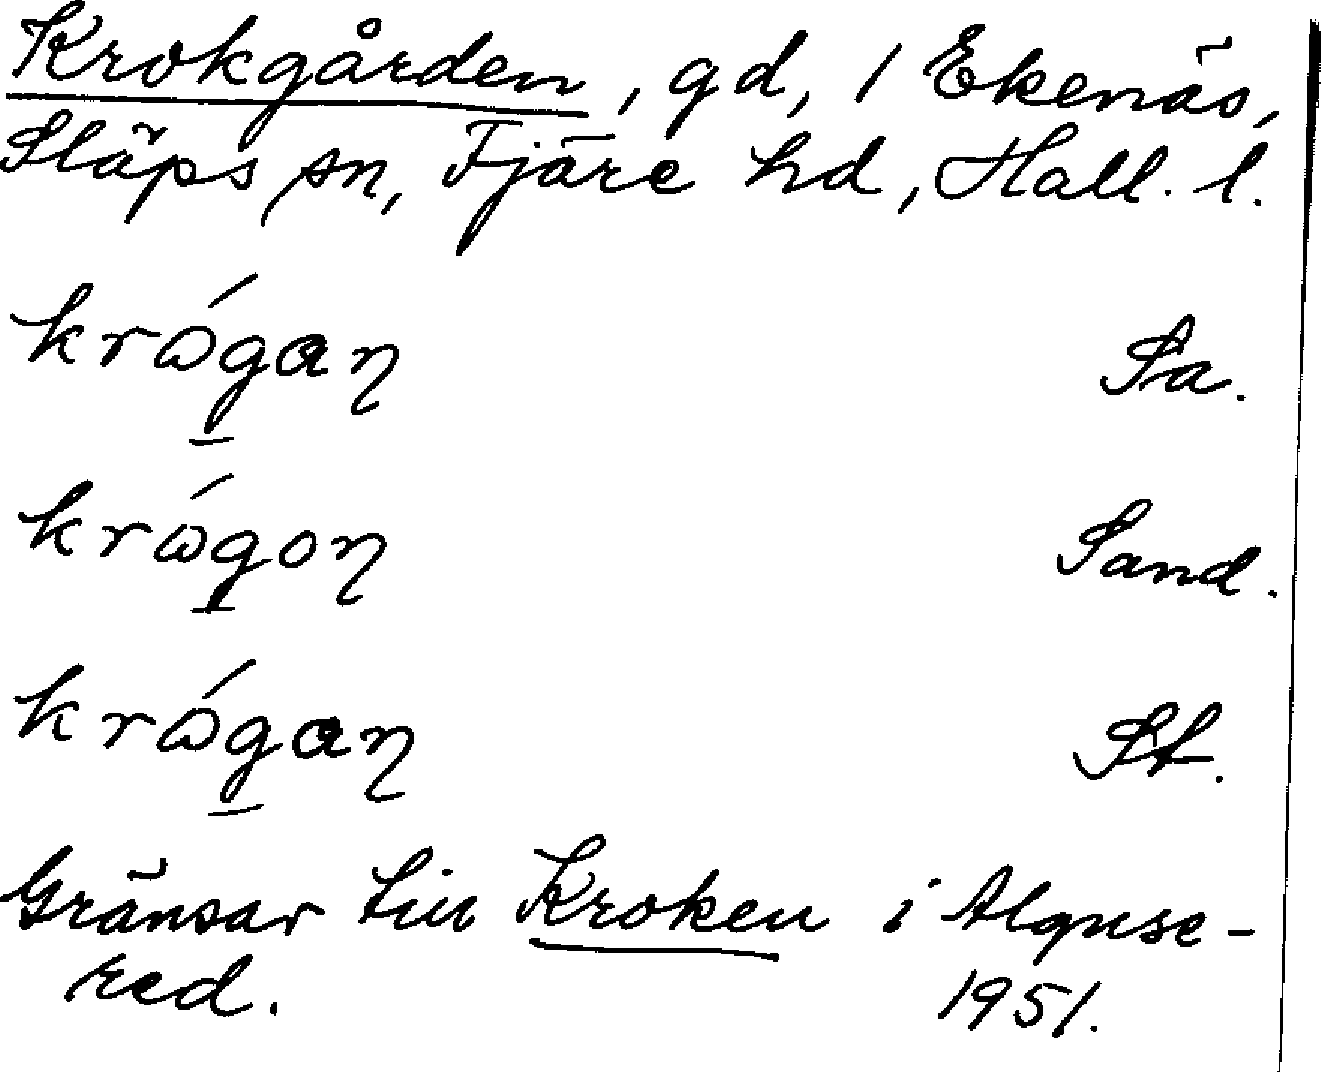 Krokgården, gd, 1 Ekenäs,
Släps sn, Fjäre hd, Hall. l.
krɷ́gaꞃ Sa.
krɷ́goꞃ Sand.
krɷ́gaꞃ St.
Gränsar till Kroken i Alguse-
red. 1951.